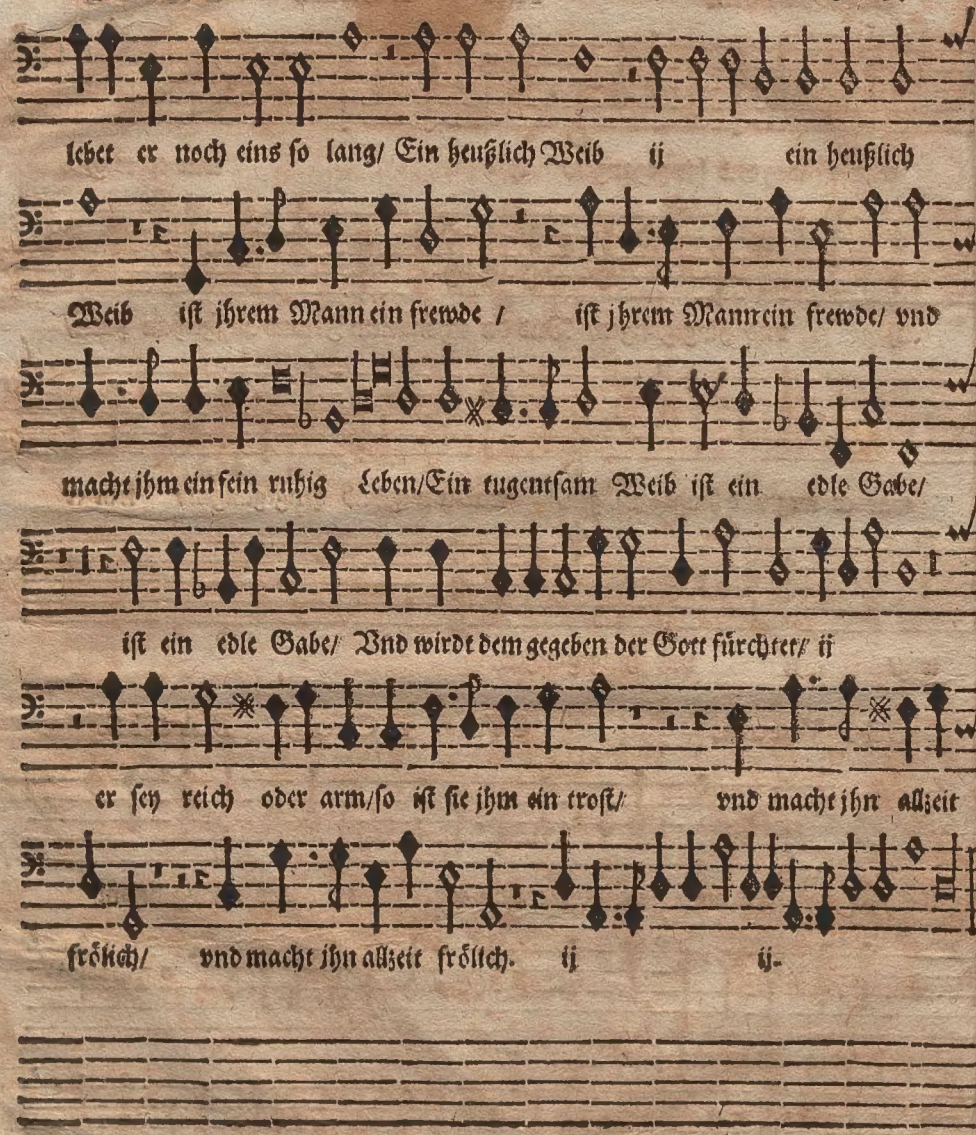 lebet er noch eins so lang/ Ein heußlich Weib ij ein heußlich
Weib ist jhrem Mann ein frewde / ist jhrem Mann ein frewde/ vnd
macht jhm ein fein ruhig Leben/ Ein tugentsam Weib ist ein edle Gabe/
ist ein edle Gabe/ Vnd wirdt dem gegeben der Gott fürchtet/ ij
er sey reich oder arm/ so ist sie jhm ein trost/ vnd macht jhn allzeit
frölich/ vnd macht jhn allzeit frölich. ij ij.